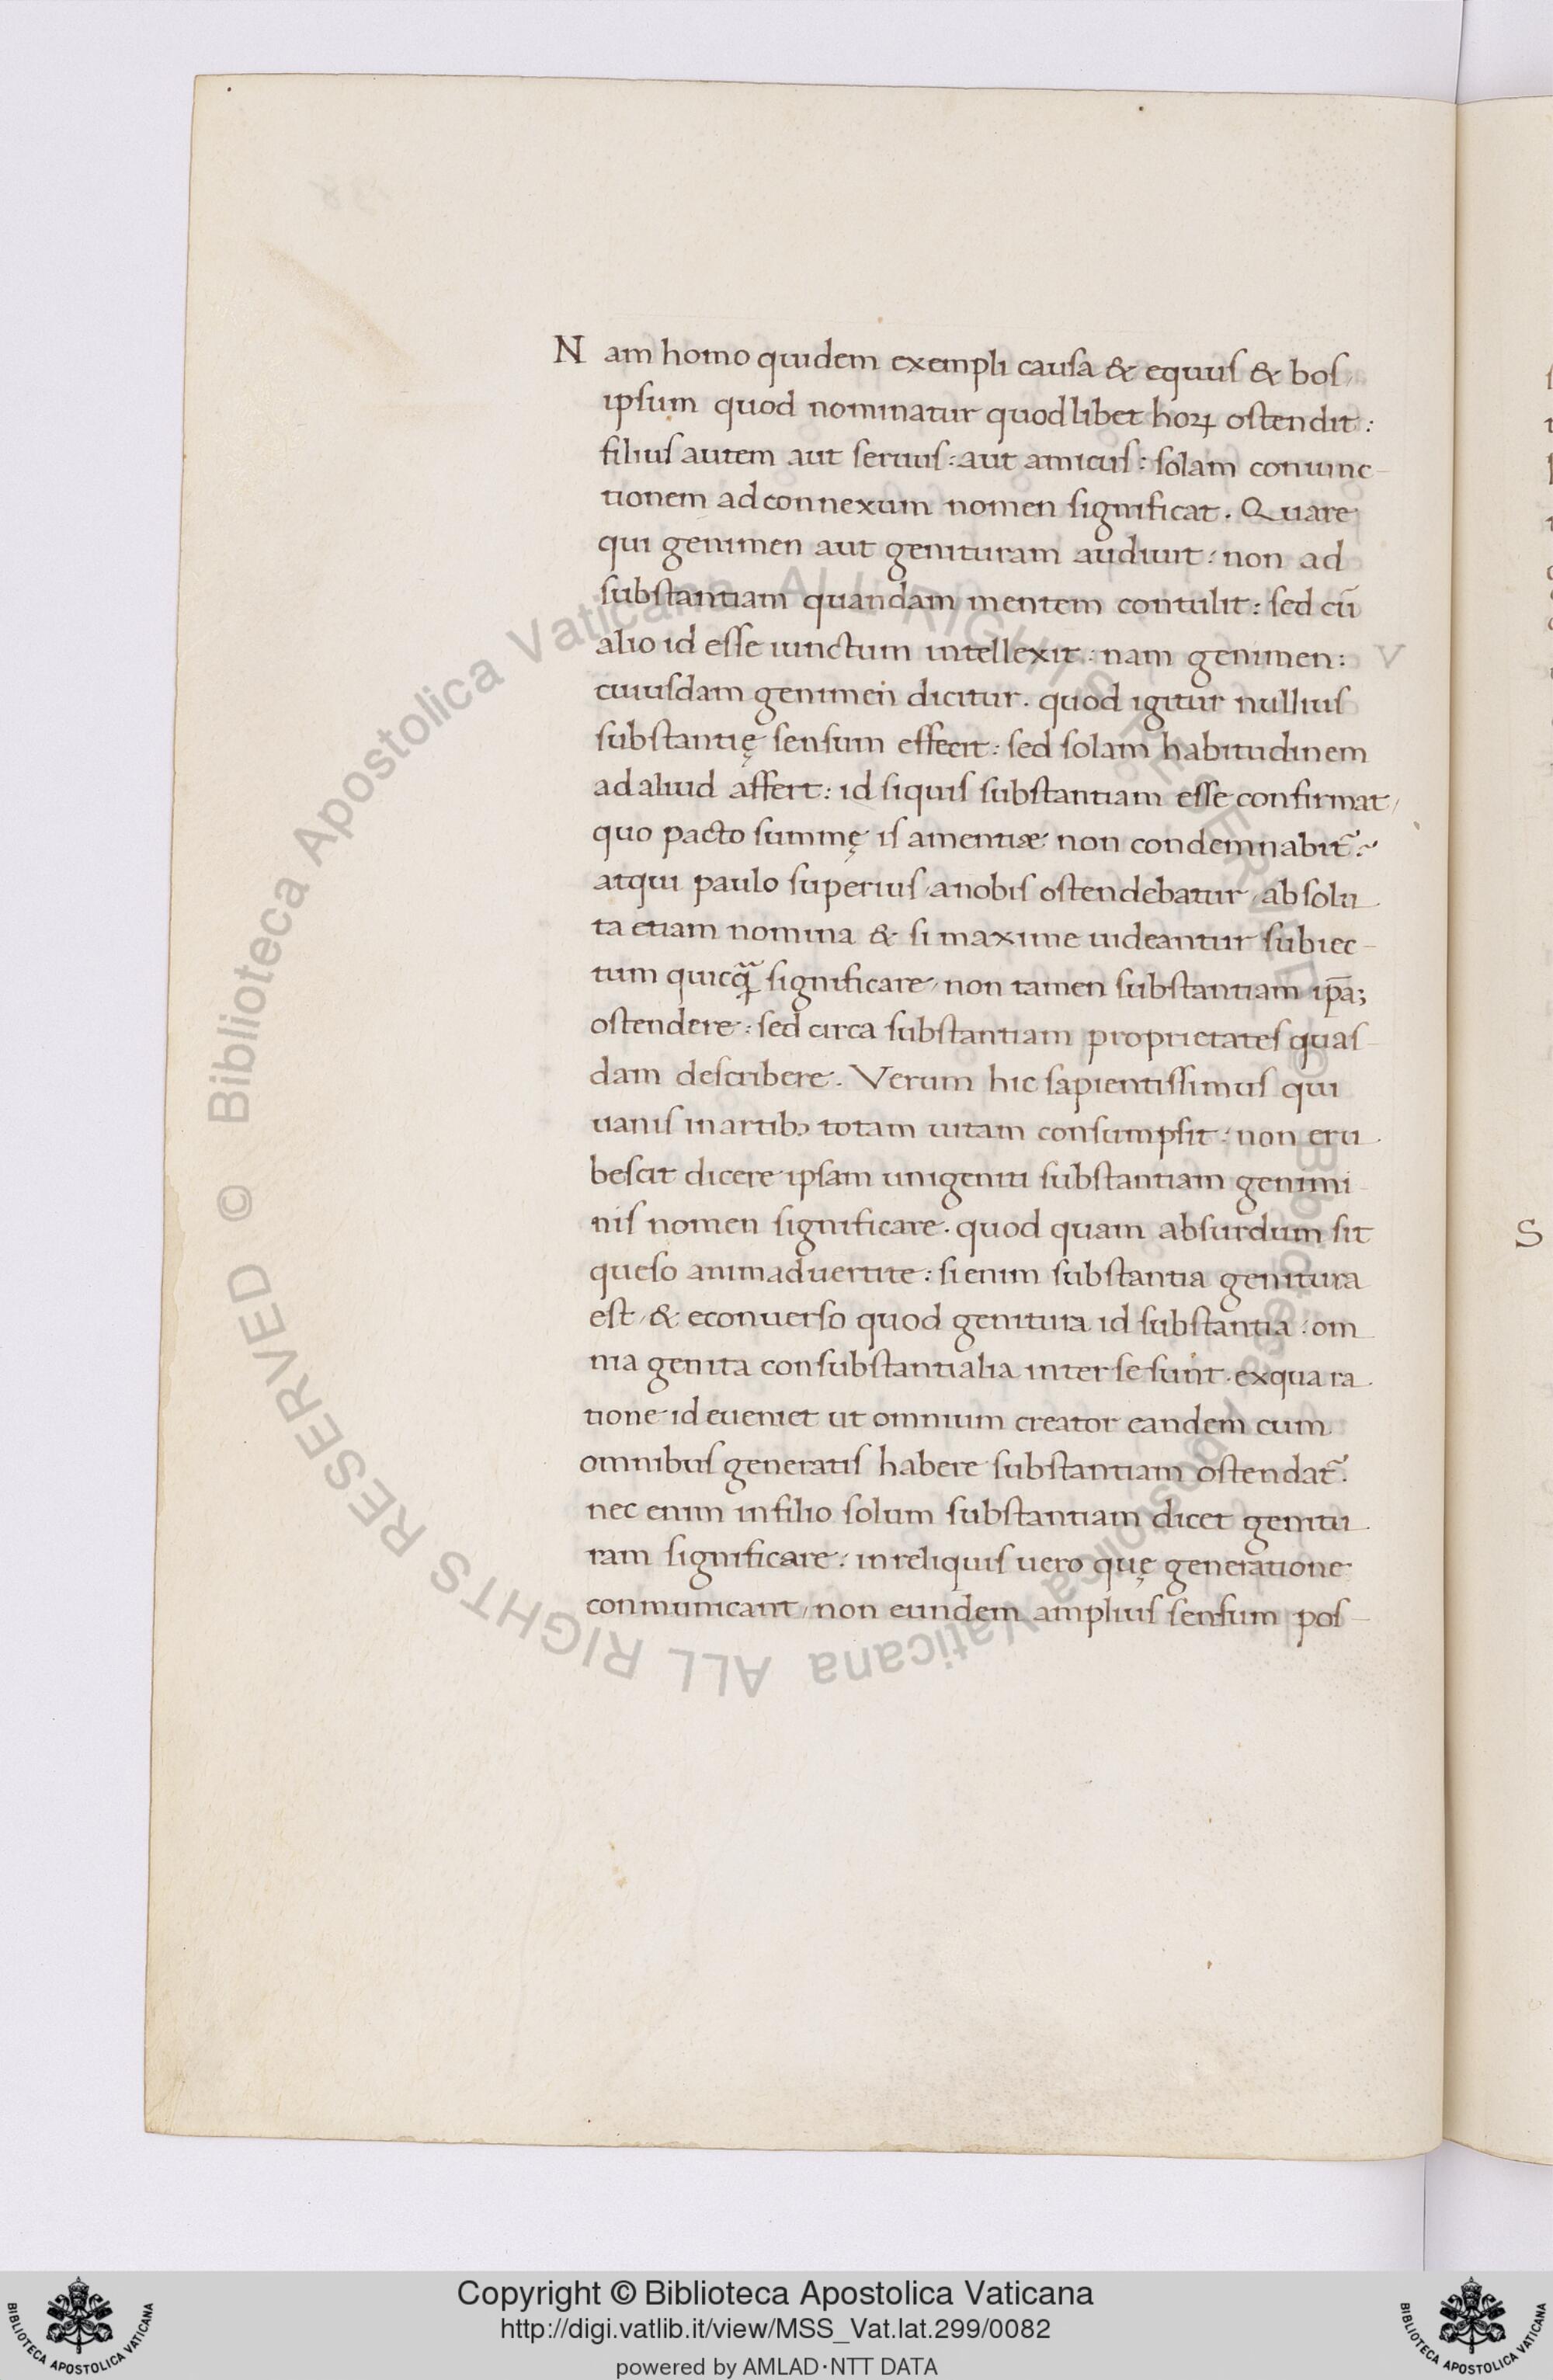 Nam homo quidem exempli causa & equus & bos
ipsum quod nominatur quodlibet hoꝝ ostendit:
filius autem aut seruus: aut amicus: solam coniunc-
tionem ad connexum nomen significat. Quare
qui genimen aut genituram audiuit: non ad
substantiam quandam mentem contulit: sed cū
alio id esse iunctum intellexit: nam genimen:
cuiusdam genimen dicitur. quod igitur nullius
substantię sensum effecit: sed solam habitudinem
ad aliud affert: id siquis substantiam esse confirmat/
quo pacto summę is amentiæ non condemnabit᷑?
atqui paulo superius a nobis ostendebatur, absolu-
ta etiam nomina & si maxime uideantur subiec-
tum quicꝙ̃ significare, non tamen substantiam ip̄aꝫ
ostendere: sed circa substantiam proprietates quas-
dam describere. Verum hic sapientissimus qui
uanis in artibꝫ totam uitam consumpsit: non eru-
bescit dicere ipsam unigeniti substantiam genimi-
nis nomen significare. quod quam absurdum sit
queso animaduertite: si enim substantia genitura
est, & econuerso quod genitura id substantia: om-
nia genita consubstantialia inter se sunt. ex qua ra-
tione id eueniet ut omnium creator eandem cum
omnibus generatis habere substantiam ostendat᷑.
nec enim in filio solum substantiam dicet genitu-
ram significare: in reliquis uero quę generatione
conmunicant, non eundem amplius sensum pos-
V
S
© Biblioteca Apostolica Vaticana ALL RIGHTS RESERVED © Biblioteca Apostolica Vaticana ALL RIGHTS RESERVED
Copyright © Biblioteca Apostolica Vaticana
http://digi.vatlib.it/view/MSS_Vat.lat.299/0082
powered by AMLAD·NTT DATA
BIBLIOTECA APOSTOLICA VATICANA
BIBLIOTECA APOSTOLICA VATICANA